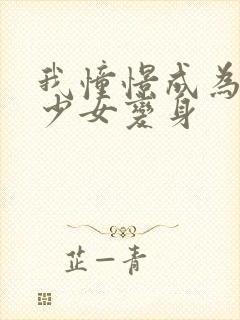 我憧憬成為
少女變身
芷一青